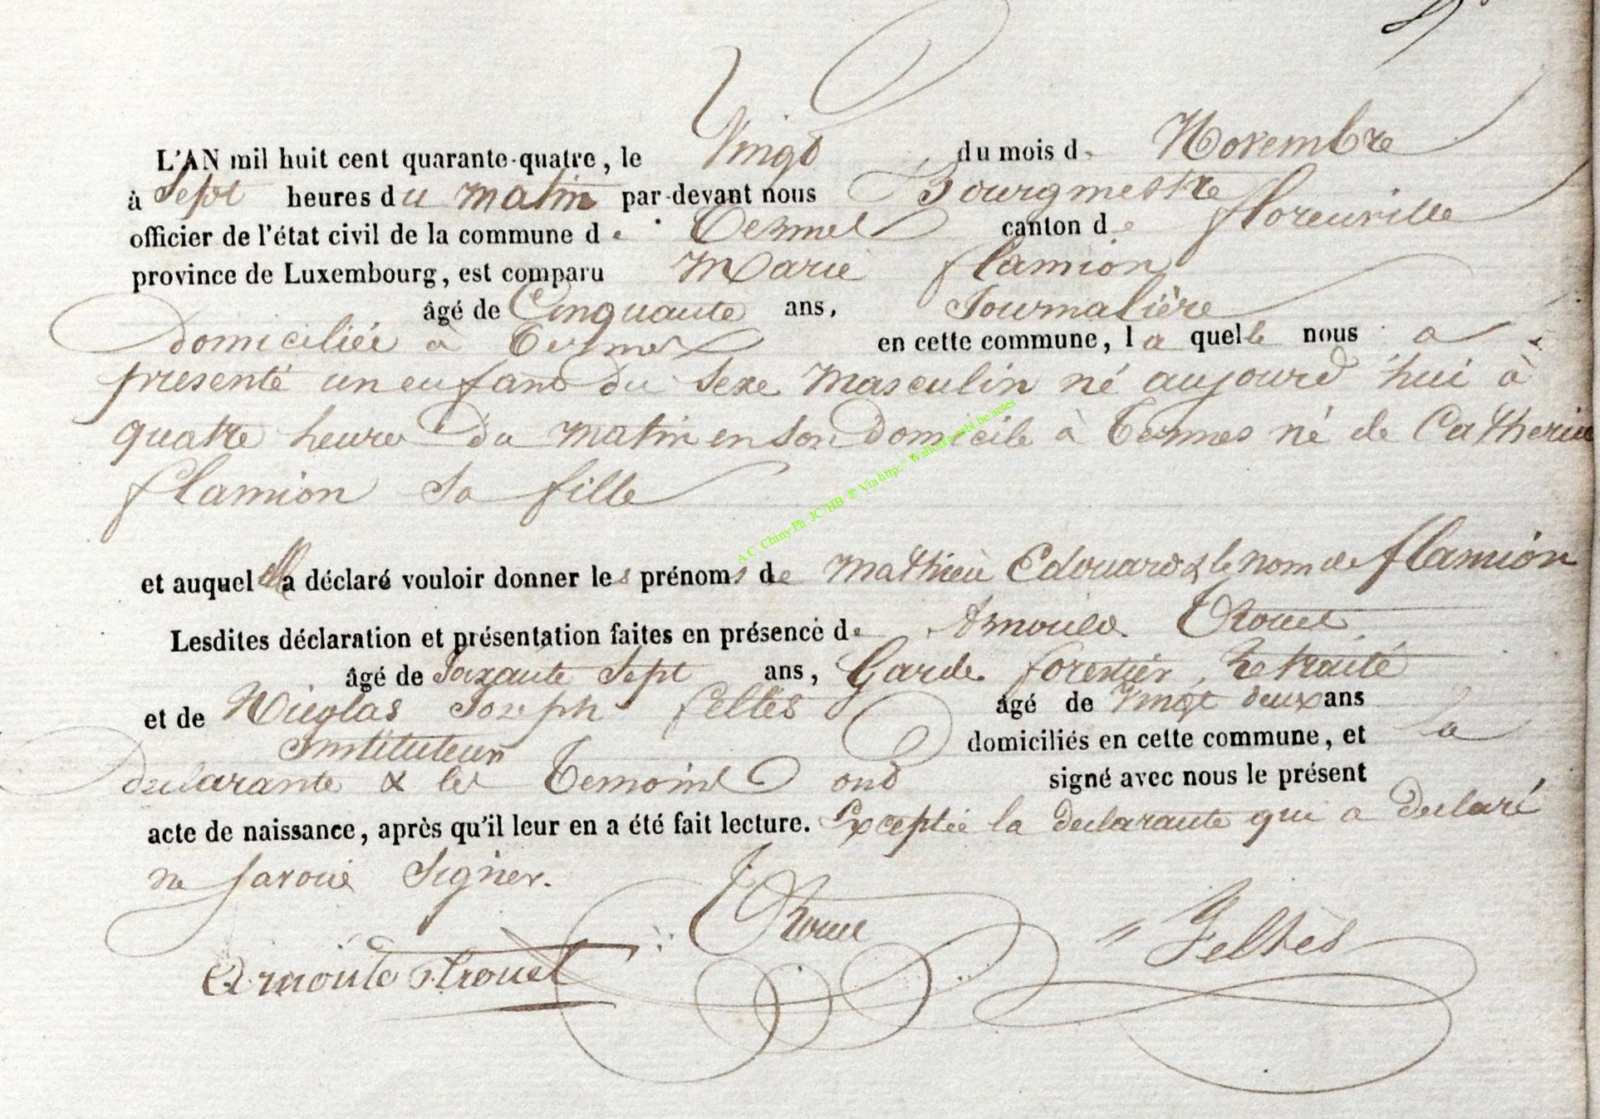 L'AN mil huit cent quarante-quatre, le Vingt du mois de Novembre
à Sept heures du matin par-devant nous Bourgmestre
officier de l'état civil de la commune de Termes canton de florenville
province de Luxembourg, est comparu Marie flamion
âgé de Cinquante ans, Journalière
Domiciliée à Termes en cette commune, laquelle nous a
presenté un enfant du Sexe Masculin né aujourd'hui à
quatre heures du matin en son Domicile à Termes né de Catherine
flamion sa fille
et auquel elle a déclaré vouloir donner les prénoms de Mathieu Edouard & le nom de flamion
Lesdites déclaration et présentation faites en présence de Arnould Troud
âgé de Soixante Sept ans, Garde forestier Retraité
et de Nicolas Joseph feltes âgé de Vingt deux ans
Instituteur domiciliés en cette commune, et la
declarante & les Temoins ont signé avec nous le présent
acte de naissance, après qu'il leur en a été fait lecture. Exceptée la declarante qui a declaré
ne savoir Signer.
Feltès
A C Chiny-Ph JC HB © Via http:// Wallonica